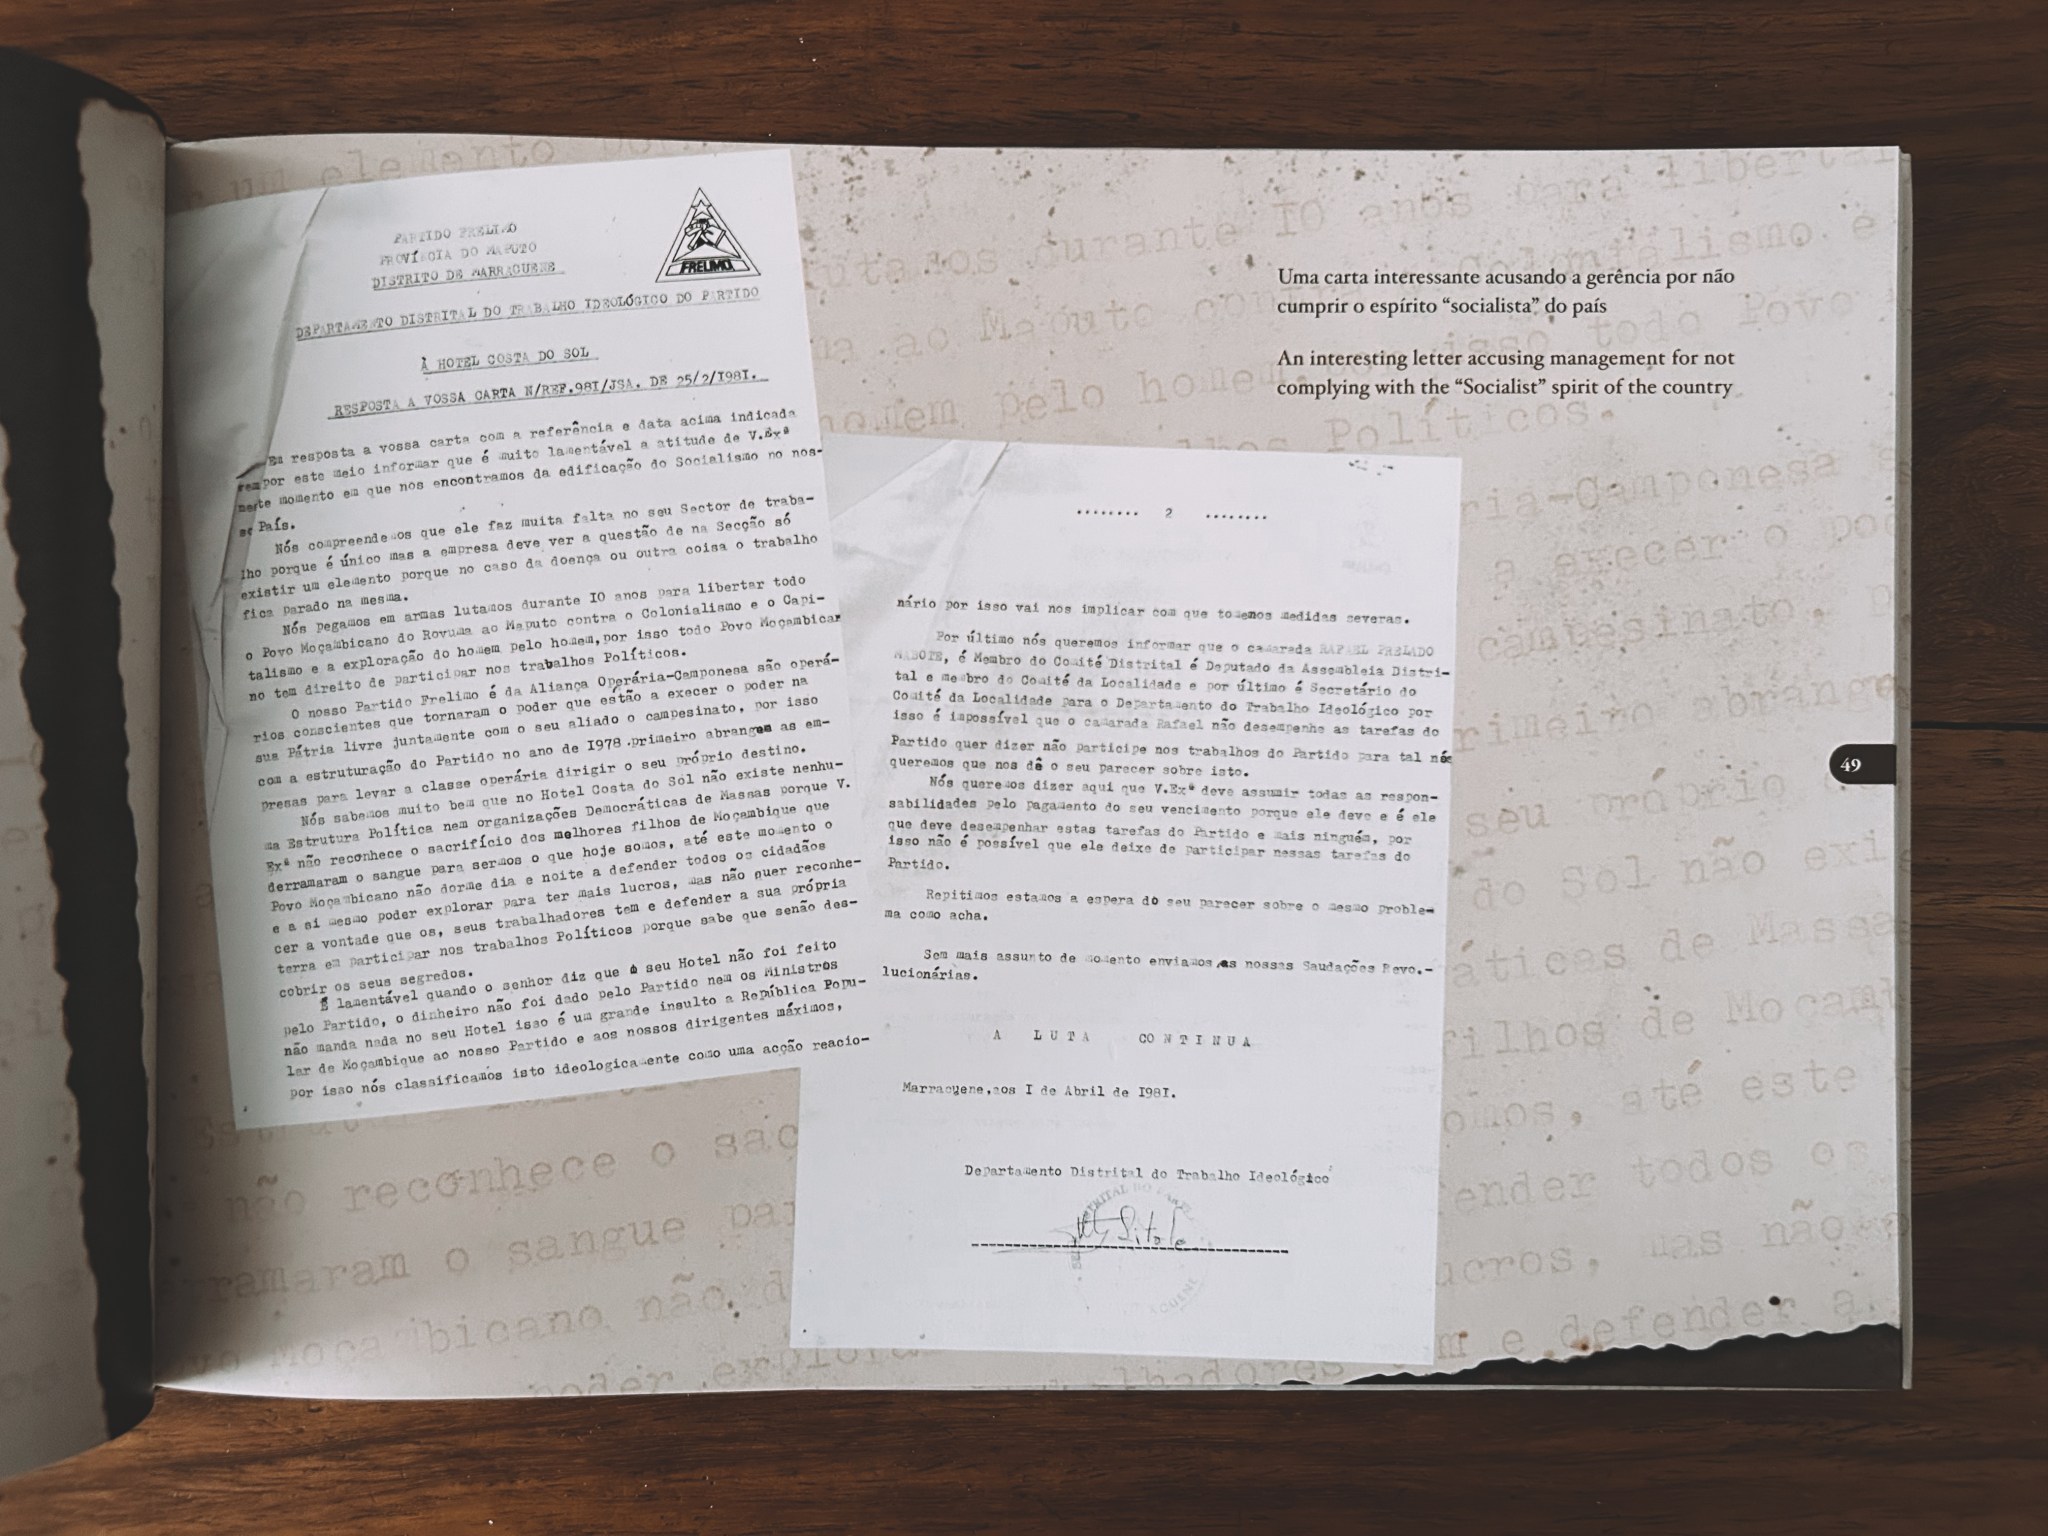 PARTIDO FRELIMO
PROVÍNCIA DO MAPUTO
DISTRITO DE MARRACUENE
FRELIMO
DEPARTAMENTO DISTRITAL DO TRABALHO IDEOLÓGICO DO PARTIDO
À HOTEL COSTA DO SOL
RESPOSTA A VOSSA CARTA N/REF.98I/JSA. DE 25/2/I98I.
Em resposta a vossa carta com a referência e data acima indicada
por este meio informar que é muito lamentável a atitude de V.Exª
neste momento em que nos encontramos da edificação do Socialismo no nos-
so País.
Nós compreendemos que ele faz muita falta no seu Sector de traba-
lho porque é único mas a empresa deve ver a questão de na Secção só
existir um elemento porque no caso da doença ou outra coisa o trabalho
fica parado na mesma.
Nós pegamos em armas lutamos durante IO anos para libertar todo
o Povo Moçambicano do Rovuma ao Maputo contra o Colonialismo e o Capi-
talismo e a exploração do homem pelo homem,por isso todo Povo Moçambica
no tem direito de participar nos trabalhos Políticos.
O nosso Partido Frelimo é da Aliança Operária-Camponesa são operá-
rios conscientes que tornaram o poder que estão a execer o poder na
sua Pátria livre juntamente com o seu aliado o campesinato, por isso
com a estruturação do Partido no ano de I978 primeiro abrangem as em-
presas para levar a classe operária dirigir o seu próprio destino.
Nós sabemos muito bem que no Hotel Costa do Sol não existe nenhu-
ma Estrutura Política nem organizações Democráticas de Massas porque V.
Exª não reconhece o sacrifício dos melhores filhos de Moçambique que
derramaram o sangue para sermos o que hoje somos, até este momento o
Povo Moçambicano não dorme dia e noite a defender todos os cidadãos
e a si mesmo poder explorar para ter mais lucros, mas não quer reconhe-
cer a vontade que os, seus trabalhadores tem e defender a sua própria
terra em participar nos trabalhos Políticos porque sabe que senão des-
cobrir os seus segredos.
É lamentável quando o senhor diz que o seu Hotel não foi feito
pelo Partido, o dinheiro não foi dado pelo Partido nem os Ministros
não manda nada no seu Hotel isso é um grande insulto a República Popu-
lar de Moçambique ao nosso Partido e aos nossos dirigentes máximos,
por isso nós classificamos isto ideologicamente como uma acção reacio-
........ 2 ........
nário por isso vai nos implicar com que tomemos medidas severas.
Por último nós queremos informar que o camarada RAFAEL FRELADO
MABOTE, é Membro do Comité Distrital é Deputado da Assembleia Distri-
tal e membro do Comité da Localidade e por último é Secretário do
Comité da Localidade para o Departamento do Trabalho Ideológico por
isso é impossível que o camarada Rafael não desempenhe as tarefas do
Partido quer dizer não participe nos trabalhos do Partido para tal nós
queremos que nos dê o seu parecer sobre isto.
Nós queremos dizer aqui que V.Exª deve assumir todas as respon-
sabilidades pelo pagamento do seu vencimento porque ele deve e é ele
que deve desempenhar estas tarefas do Partido e mais ninguém, por
isso não é possível que ele deixe de participar nessas tarefas do
Partido.
Repitimos estamos a espera do seu parecer sobre o mesmo proble-
ma como acha.
Sem mais assunto de momento enviamos as nossas Saudações Revo.-
lucionárias.
A LUTA CONTINUA
Marracuene,aos I de Abril de I98I.
Departamento Distrital do Trabalho Ideológico
Sitole
Uma carta interessante acusando a gerência por não
cumprir o espírito “socialista” do país
An interesting letter accusing management for not
complying with the “Socialist” spirit of the country
49